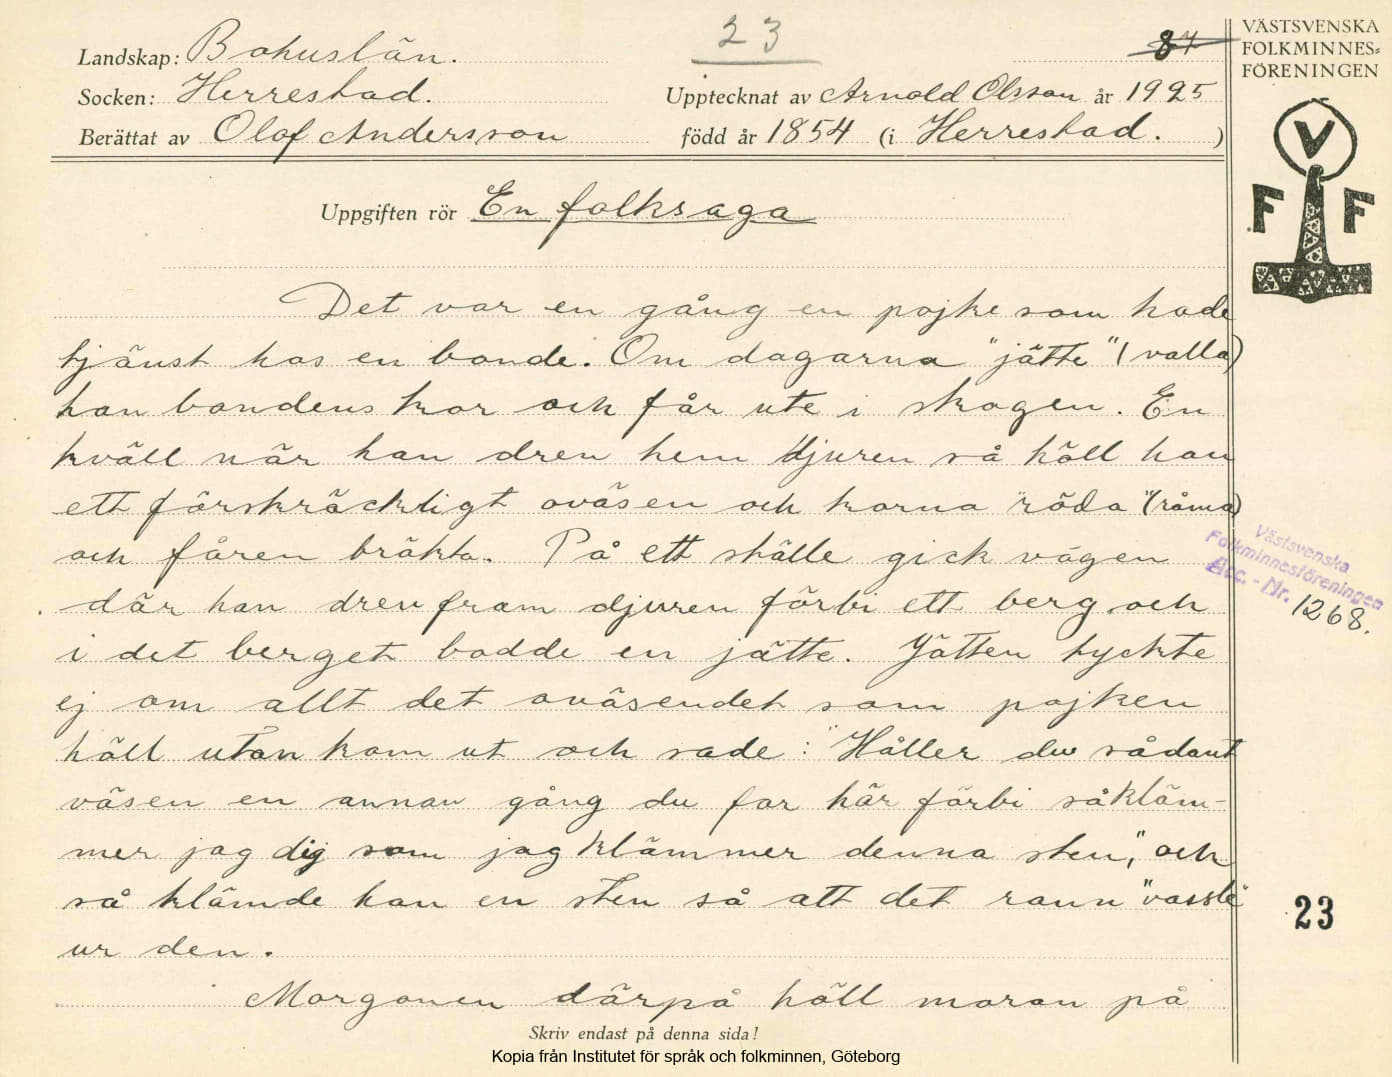 23
87
VÄSTSVENSKA
FOLKMINNES=
FÖRENINGEN
Landskap: Bohuslän.
Socken: Herrestad.
Upptecknat av Arnold Olsson år 1925
Berättat av Olof Andersson
född år 1854 (i Herrestad.)
V
F F
Uppgiften rör En folksaga
Det var en gång en pojke som hade
tjänst hos en bonde. Om dagarna "jätte" (valla)
han bondens kor och får ute i skogen. En
kväll när han drev hem djuren så höll han
ett förskräckligt oväsen och korna "röda" (råma)
och fåren bräkta. På ett ställe gick vägen
där han drev fram djuren förbi ett berg och
i det berget bodde en jätte. Jätten tyckte
ej om allt det oväsendet som pojken
höll utan kom ut och sade: "Håller du sådant
väsen en annan gång du far här förbi så kläm-
mer jag dig som jag klämmer denna sten", och
så klämde han en sten så att det rann "vassle"
ur den.
Morgonen därpå höll moran på
Västsvenska
Folkminnesföreningen
Acc. - Nr. 1268.
23
Skriv endast på denna sida!
Kopia från Institutet för språk och folkminnen, Göteborg